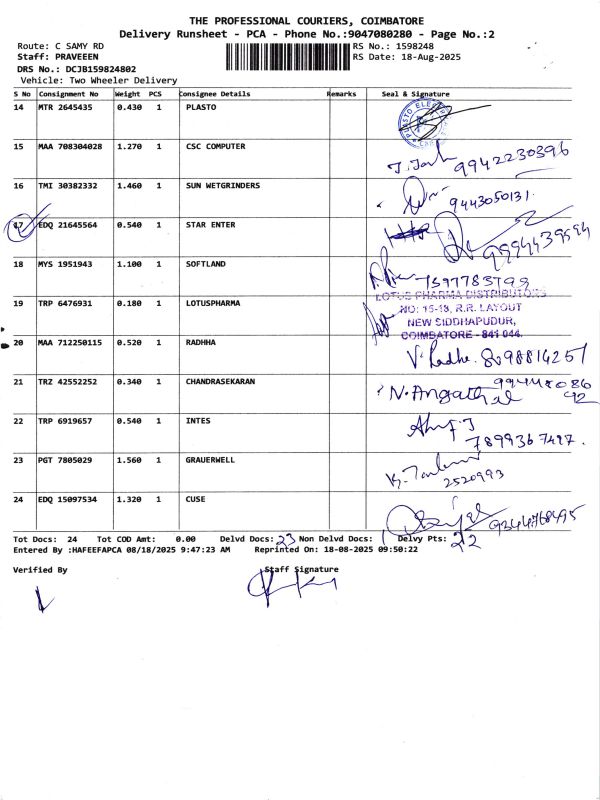 THE PROFESSIONAL COURIERS, COIMBATORE
Delivery Runsheet - PCA - Phone No.:9047080280 - Page No.:2
Route: C SAMY RD
RS No.: 1598248
Staff: PRAVEEEN
RS Date: 18-Aug-2025
DRS No.: DCJB159824802
Vehicle: Two Wheeler Delivery
S No Consignment No Weight PCS Consignee Details Remarks Seal & Signature
14 MTR 2645435 0.430 1 PLASTO
15 MAA 708304028 1.270 1 CSC COMPUTER 9942230396
16 TMI 30382332 1.460 1 SUN WETGRINDERS 9443050131.
17 EDQ 21645564 0.540 1 STAR ENTER 9994439594
18 MYS 1951943 1.100 1 SOFTLAND 7597783799
19 TRP 6476931 0.180 1 LOTUSPHARMA
LOTUS PHARMA DISTRIBUTORS
NO: 15-18, R.R. LAYOUT
NEW SIDDHAPUDUR,
COIMBATORE - 641 044.
20 MAA 712250115 0.520 1 RADHHA V. Radhe. 8098814257
21 TRZ 42552252 0.340 1 CHANDRASEKARAN N. Angathal
22 TRP 6919657 0.540 1 INTES 7899367497.
23 PGT 7805029 1.560 1 GRAUERWELL 2520993
24 EDQ 15097534 1.320 1 CUSE 9344768495
Tot Docs: 24 Tot COD Amt: 0.00 Delvd Docs: 23 Non Delvd Docs: 1 Delvy Pts: 22
Entered By :HAFEEFAPCA 08/18/2025 9:47:23 AM Reprinted On: 18-08-2025 09:50:22
Verified By Staff Signature